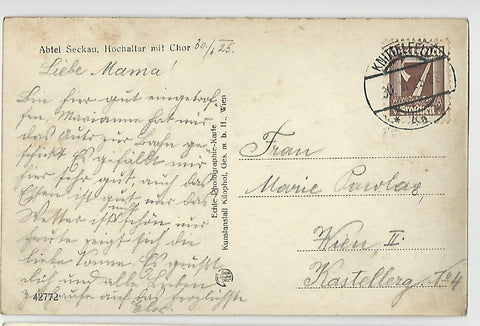 Abtei Seckau, Hochaltar mit Chor 30./6.25.
Liebe Mama!
Bin hier gut eingetrof-
fen, Marianne hat mir
das Auto zur Bahn ge-
schickt. Es gefällt mir
hier sehr gut, auch das
Essen ist gut, nur das
Wetter ist nicht schön, nur
heute zeigt sich die
liebe Sonne. Es grüßt
dich und alle Lieben
zuhause auf das herzlichste
42772
Echte Photographie-Karte
Kunstanstalt Kilophot, Ges. m. b. H., Wien
KNITTELFELD
Frau
Marie Pawlas,
Wien, II
Kastellezg. No 4